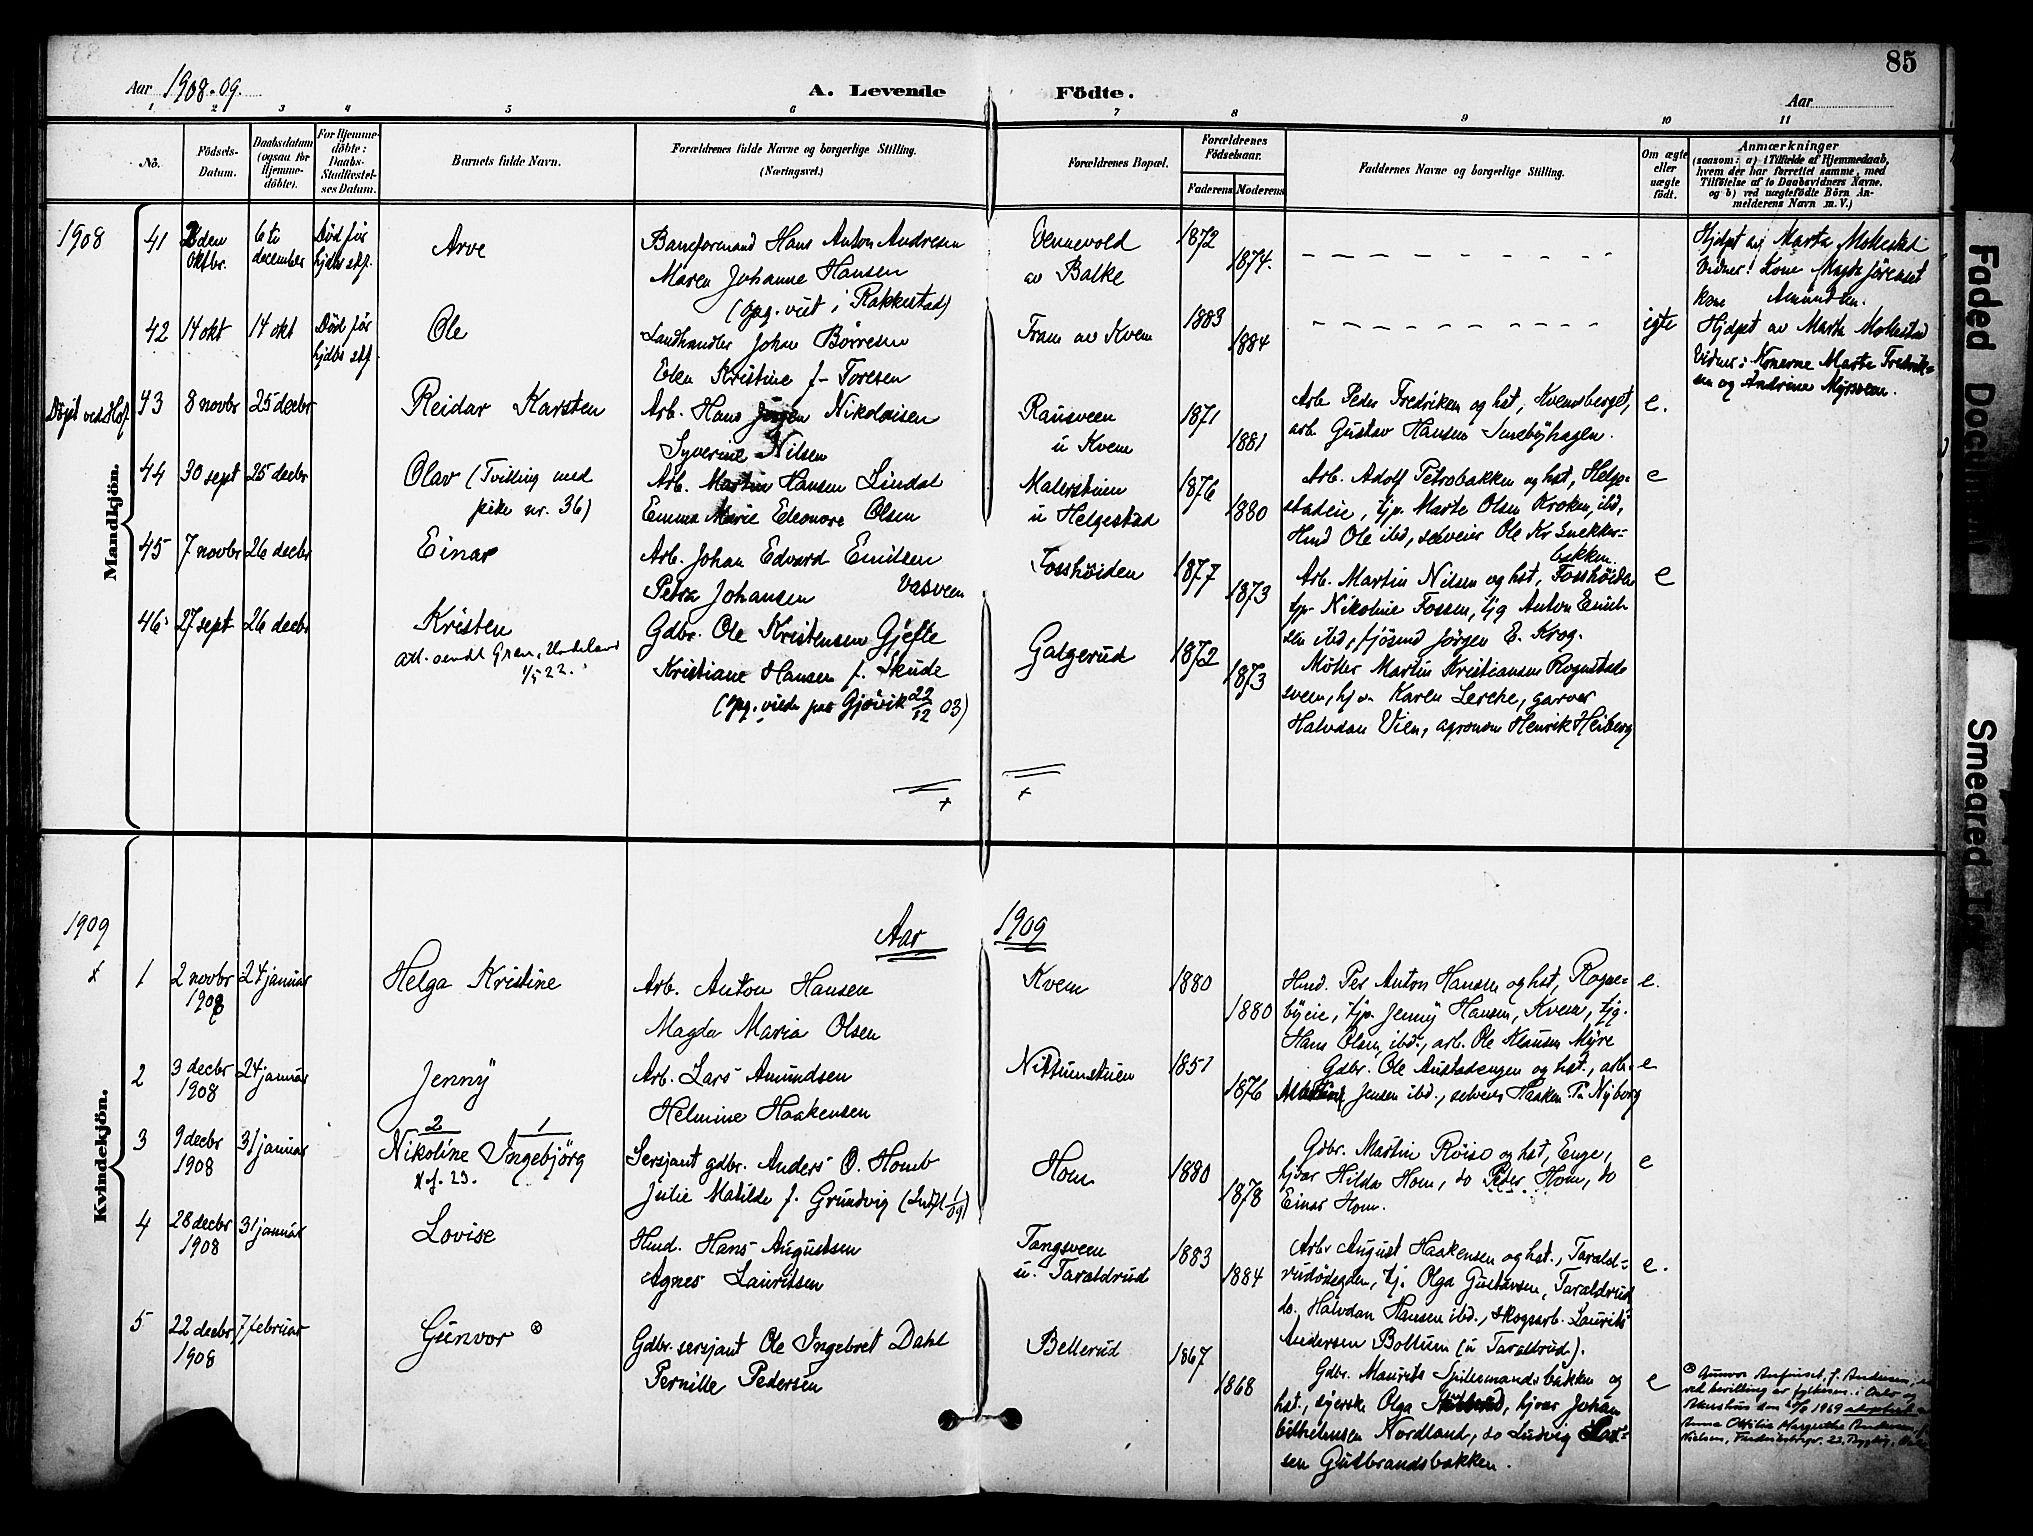 85
Aar 1908-09.
A. Levende Födte.
Aar
1 2 3 4 5 6 7 8 9 10 11
No.
Födsels-Datum.
Daabsdatum (ogsaa for Hjemmedöbte).
For Hjemmedöbte: Daabs-Stadfæstelses Datum.
Barnets fulde Navn.
Forældrenes fulde Navne og borgerlige Stilling.
(Næringsvei.)
Forældrenes Bopæl.
Forældrenes Födselsaar.
Faderens Moderens
Faddernes Navne og borgerlige Stilling.
Om ægte eller uægte födt.
Anmærkninger
(saasom: a) i Tilfælde af Hjemmedaab,
hvem der har forrettet samme, med
Tilföielse af to Daabsvidners Navne,
og b) ved uægtefödte Börn Anmelderens Navn m. V.)
Mandkjön.
1908
41 den oktbr. 6te december Död før hjdbs stf. Arve
Baneformand Hans Anton Andresen
Maren Johanne Hansen
(gg. viet i Rakkestad)
Vennevold
av Balke
1872
1874.
Hjdpt av Marta Mokestad
Vidner: Kone Magda Jörenset
kone Amundsen.
42 14 okt 14 okt Död før hjdbs stf. Ole
Landhandler Johan Börresen
Elen Kristine f. Toresen
Fram av Kvem
1883
1884
egte
Hjdpt av Marta Mokestad
Vidner: Konerne Marte Fredriksen og Andrine Myrsveen.
43 8 novbr 25 decbr Reidar Karsten
Arb. Hans Jörgen Nikolaisen
Syverine Nilsen
Rausveen
u Kvem
1871
1881
Arb Peder Fredriksen og hst, Kvemsberget,
arb. Gustav Hansen Smebyhagen.
e.
44 30 sept 25 decbr Olav (Tvilling med
pike nr. 36)
Arb. Martin Hansen Lindal
Emma Marie Eleonore Olsen
Malerstuen
u Helgestad
1876
1880
Arb. Adolf Petrobakken og hst, Helgestadeie, tjp. Marte Olsen Kroken, ibd,
Hmd Ole ibd, selveier Ole Kr Snekkerbakken.
e
45 7 novbr 26 decbr Einar
Arb. Johan Edvard Emilsen
Petra Johansen Vasveen
Fosshöiden
1877
1873
Arb. Martin Nilsen og hst, Fosshöiden
tjp. Nikoline Fossen, tjg Anton Emilsen ibd, fjösmd Jörgen E. Krog.
e
46. 27 sept 26 decbr Kristen
Att. sendt Gran, Hadeland
1/5 22.
Gdbr. Ole Kristensen Gjefle
Kristiane Hansen f. Skude
(gg. viede paa Gjövik 22/12 03)
Galgerud
1872
1873
Möller Martin Kristiansen Rognstadsveen, hj v. Karen Lerche, garver
Halvdan Vien, agronom Henrik Heiberg
Kvindekjön.
1909
Aar 1909
1 2 novbr 1908 24 januar Helga Kristine
Arb. Anton Hansen
Magda Maria Olsen
Kvem
1880
1880
Hmd. Per Anton Hansen og hst, Rognebyeie, tjp. Jenny Hansen, Kvem, tjg.
Hans Olsen, ibd., arb. Ole Klausen Myre
e.
2 3 decbr 1908 24 januar Jenny
Arb. Lars Amundsen
Helmine Haakensen
Nittumstuen
1851
1876
Gdbr. Ole Austadengen og hst., arb.
Jensen ibd., selveier Haaken P. Nyborg
e
3 9 decbr 1908 31 januar Nikoline Ingebjörg
2 1
Sersjant gdbr. Anders O. Homb
Julie Matilde f. Grundvig
Hom
1880
1878
Gdbr. Martin Röise og hst, Enge,
hjvær Hilda Hom, do Peder Hom, do
Einar Hom.
e
4 28 decbr 1908 31 januar Lovise
Hmd. Hans Augustsen
Agnes Lauritsen
Tangsveen
u. Taraldrud
1883
1884
Arb. August Haakensen og hst., Taraldrudödegden, tj. Olga Gustavsen, Taraldrud
do. Halvdan Hansen ibd., skogsarb. Laurits
Andersen Bottum (u Taraldrud).
e.
5 22 decbr, 1908 7 februar Gunvor
Gdbr. sersjant Ole Ingebret Dahl
Pernille Pedersen
Bellerud
1867
1868
Gdbr. Maurits Spillemandsbakken og
hst., syerske Olga, hjvær Johan
Vilhelmsen Nordland, do Ludvig Larsen Gutbrandsbakken.
e
Gunvor f. Andersen,
ved bevilling av fylkesm. i Oslo og
Akershus den 1969 adoptert av
Faded Document
Smeared